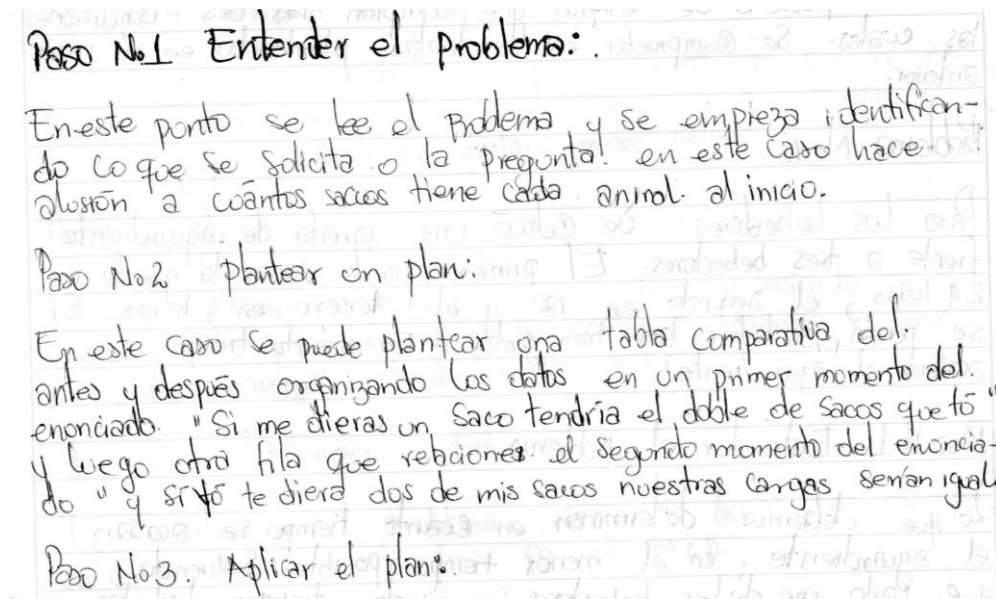 Paso No.1 Entender el problema:.
En este punto se lee el Problema y se empieza identifican-
do lo que se solicita o la pregunta! en este caso hace
alusión a cuántos sacos tiene cada animal al inicio.
Paso No.2 plantear un plan:
En este caso se puede plantear una tabla comparativa del
antes y después organizando los datos en un primer momento del.
enunciado. "Si me dieras un Saco tendría el doble de sacos que tú"
y luego otra fila que relaciones el segundo momento del enuncia-
do "y si yó te diera dos de mis sacos nuestras cargas serían igual
Paso No.3. Aplicar el plan:.